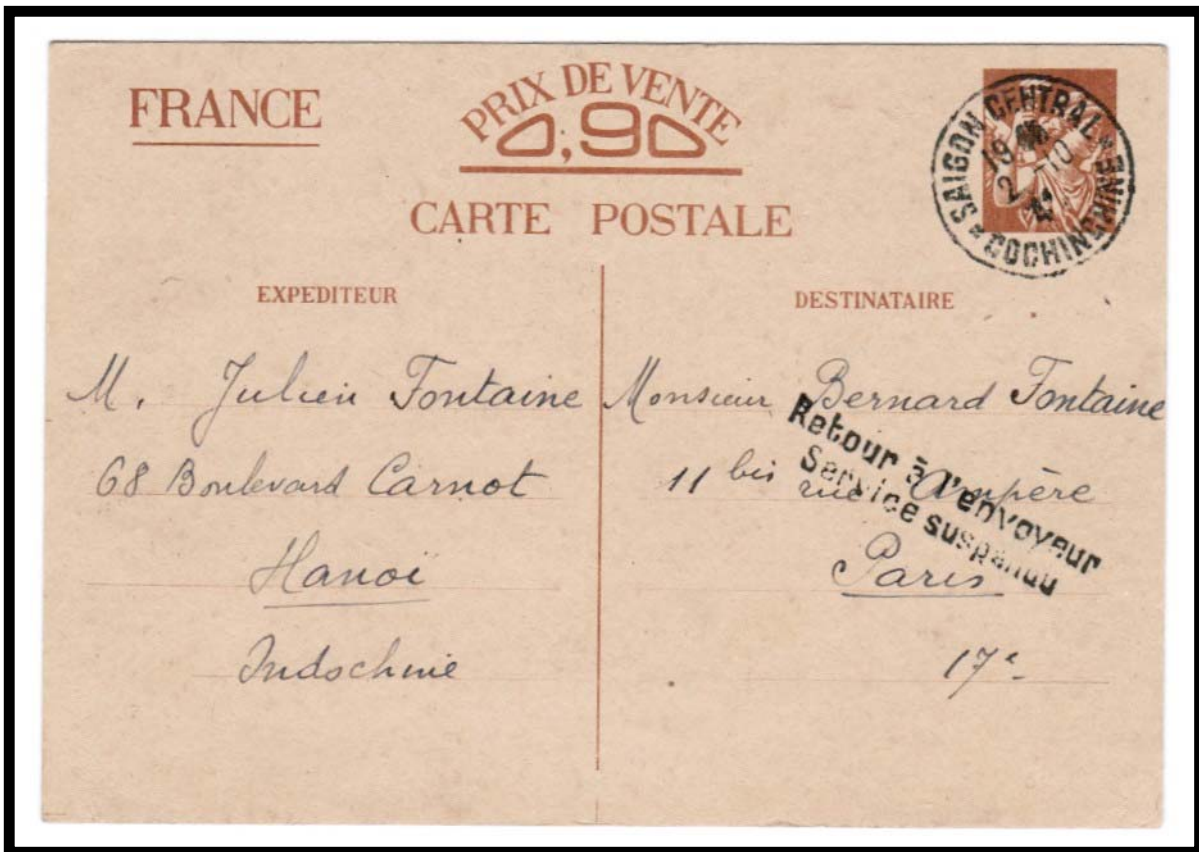 FRANCE
PRIX DE VENTE
0,90
CARTE POSTALE
SAIGON CENTRAL * COCHINCHINE *
2 -10
41
EXPEDITEUR
M. Julien Fontaine
68 Boulevard Carnot
Hanoï
Indochine
DESTINATAIRE
Monsieur Bernard Fontaine
11 bis rue Ampère
Paris
17e
Retour à l'envoyeur
Service suspendu